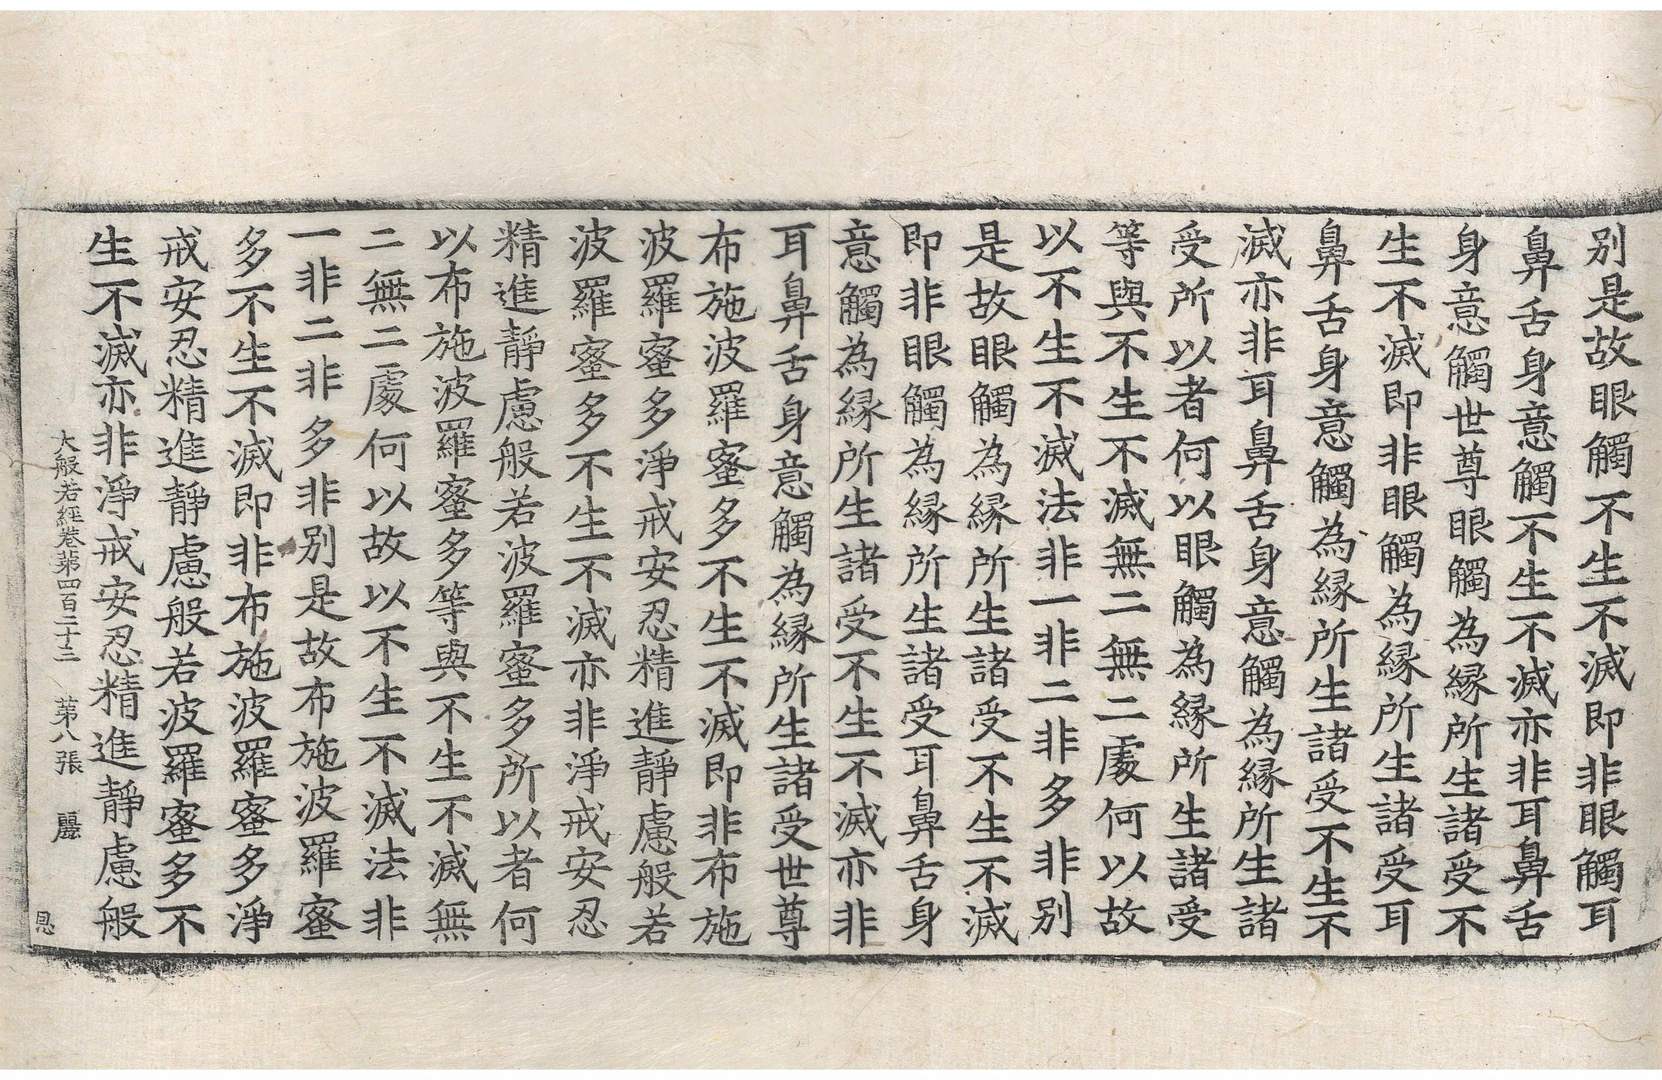 别是故眼觸不生不滅即非眼觸耳
鼻舌身意觸不生不滅亦非耳鼻舌
身意觸世尊眼觸為縁所生諸受不
生不滅即非眼觸為縁所生諸受耳
鼻舌身意觸為縁所生諸受不生不
滅亦非耳鼻舌身意觸為縁所生諸
受所以者何以眼觸為縁所生諸受
等與不生不滅無二無二處何以故
以不生不滅法非一非二非多非别
是故眼觸為縁所生諸受不生不滅
即非眼觸為縁所生諸受耳鼻舌身
意觸為縁所生諸受不生不滅亦非
耳鼻舌身意觸為縁所生諸受世尊
布施波羅蜜多不生不滅即非布施
波羅蜜多淨戒安忍精進靜慮般若
波羅蜜多不生不滅亦非淨戒安忍
精進靜慮般若波羅蜜多所以者何
以布施波羅蜜多等與不生不滅無
二無二處何以故以不生不滅法非
一非二非多非别是故布施波羅蜜
多不生不滅即非布施波羅蜜多淨
戒安忍精進靜慮般若波羅蜜多不
生不滅亦非淨戒安忍精進靜慮般
大般若經卷苐四百二十三 苐八張 麗
恩